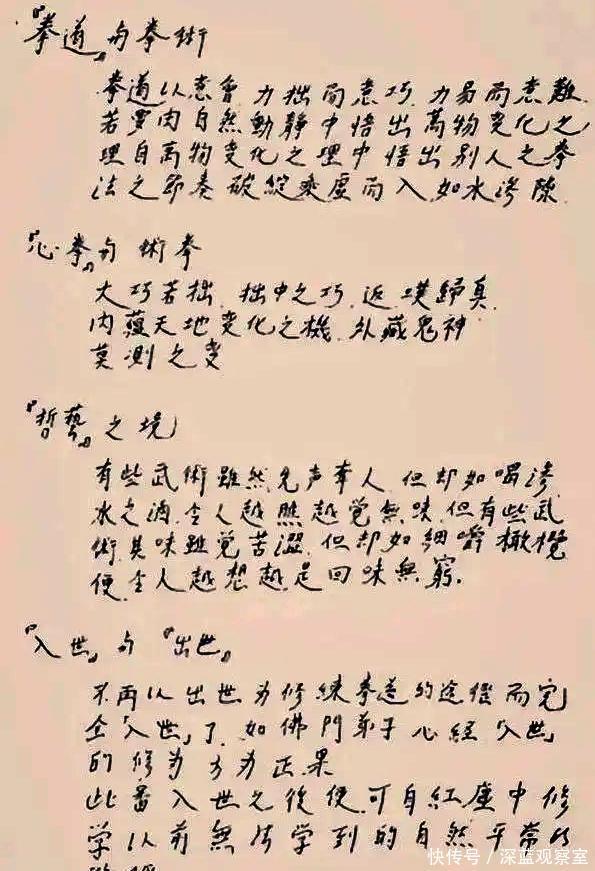 『拳道』与拳術
拳道以意會 力拙而意巧 力易而意難
若要由自然動靜中悟出萬物变化之
理自萬物变化之理中悟出別人之拳
法之節奏破綻乘虛而入如水滲隙
『心拳』与術拳
大巧若拙 拙中之巧 返璞歸真
內蘊天地变化之機 外藏鬼神
莫測之变
『哲藝』之境
有些武術雖然先声奪人 但却如喝滲
水之酒 令人越喝越覚無味 但有些武
術其味雖覚苦澀 但却如細嚼橄欖
便令人越想越是回味無窮.
『入世』与『出世』
不再以出世为修練拳道的途徑而完
全「入世」了 如佛門弟子心經「入世」
的修为方为正果
此番入世之後便可自紅塵中修
学以前無法学到的自然平常的
快传号／深蓝观察室